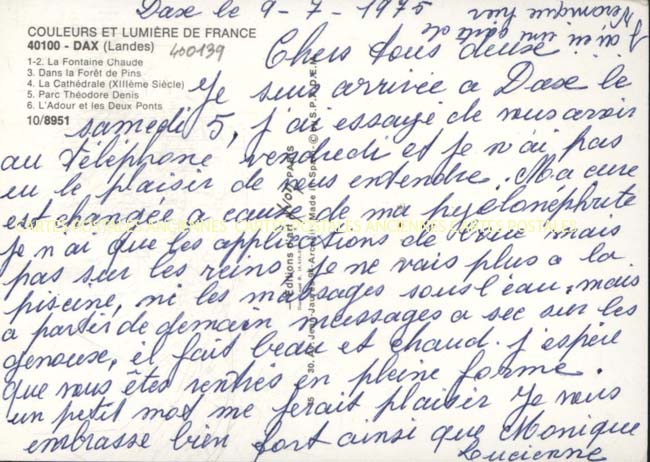 Dax le 9-7-1975
J'ai eu une carte de
Véronique hier
COULEURS ET LUMIÈRE DE FRANCE
40100 - DAX (Landes)
400139
1-2. La Fontaine Chaude
3. Dans la Forêt de Pins
4. La Cathédrale (XIIIème Siècle)
5. Parc Théodore Denis
6. L'Adour et les Deux Ponts
10/8951
Chers tous deux
Je suis arrivée a Daxe le
samedi 5, j'ai essayé de vous avoir
au téléphone vendredi et je n'ai pas
eu le plaisir de vous entendre. Ma cure
est changée a cause de ma pyélonéphrite
je n'ai que les applications de boue mais
pas sur les reins, je ne vais plus a la
piscine, ni les massages sous l'eau, mais
a partir de demain messages a sec sur les
genoux, il fait beau et chaud. j'espère
que vous êtes rentrés en pleine forme.
un petit mot me ferait plaisir Je vous
embrasse bien fort ainsi que Monique
Lucienne
Editions d'art YVON PARIS
30, Av. Jean-Jaurès
Made in
CARTES POSTALES ANCIENNES CARTES POSTALES ANCIENNES CARTES POSTALES